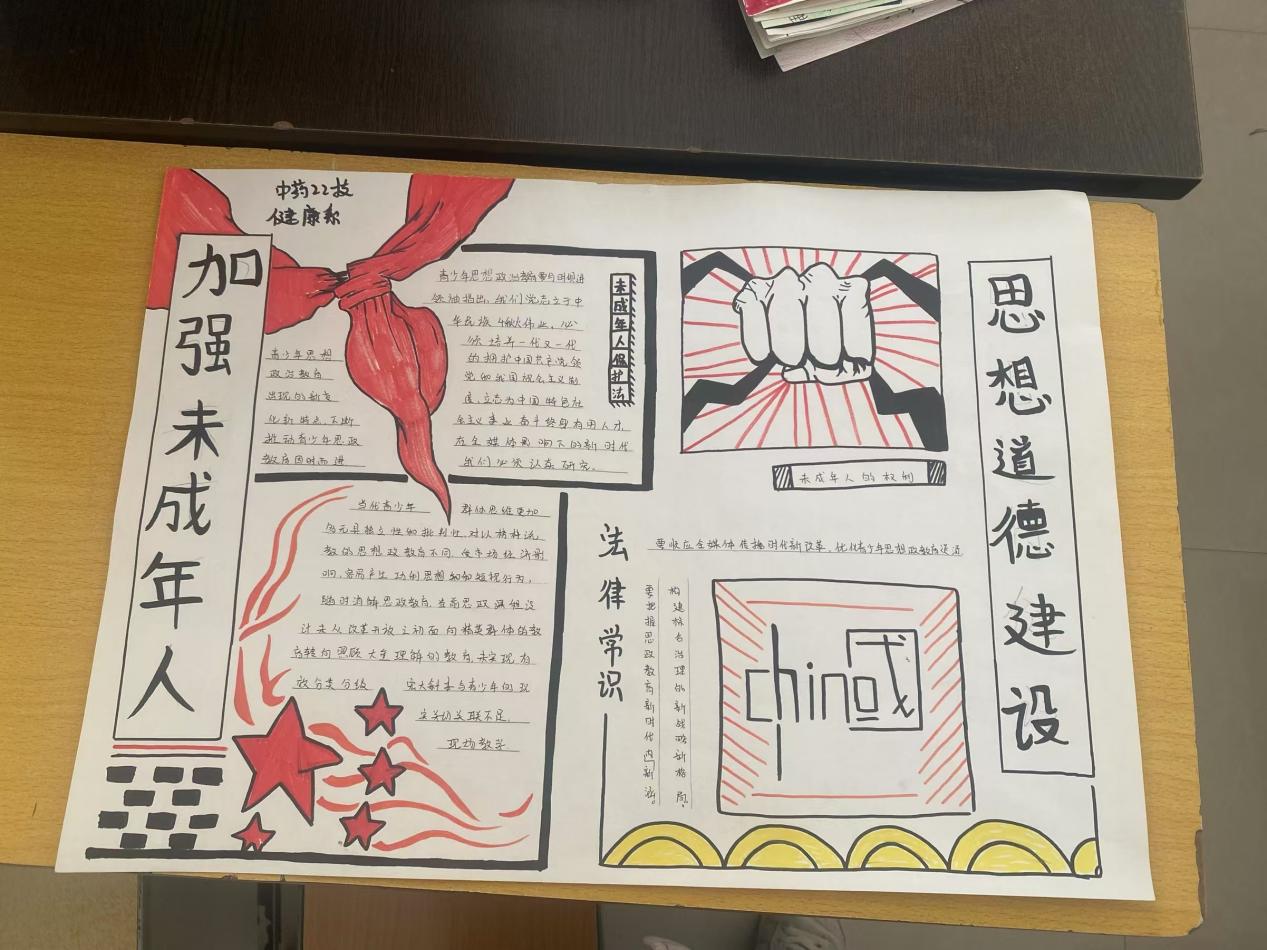 中药22技
健康系
加强未成年人
青少年思想
政治教育
出现的新变
化新特点,不断
推动青少年思政
教育因时而进
青少年思想政治教育要与时俱进
领袖指出,我们党志立于中
华民族千秋伟业,必
须培养一代又一代
的拥护中国共产党领
党和我国社会主义制
度,立志为中国特色社
会主义事业奋斗终身有用人才,
在全媒体影响下的新时代
我们必须认真研究。
未成年人保护法
当代青少年 群体思维更加
多元具独立性和批判性,对以榜样说
教的思想政教育不同,受市场经济影
响,容易产生功利思想和和短视行为,
随时消解思政教育,当前思政课程设
计未从改革开放之初面向精英群体的教
育转向照顾大全理解的教育,未实现有
效分类分级 宏大叙事与青少年的现
实关切关联不足,
现场教学
未成年人的权利
要顺应全媒体传播时代新改革,优化青少年思想政教育
法律常识
构建综合治理的新战略新格局,
要把握思政教育新时代内新涵。
china
思想道德建设